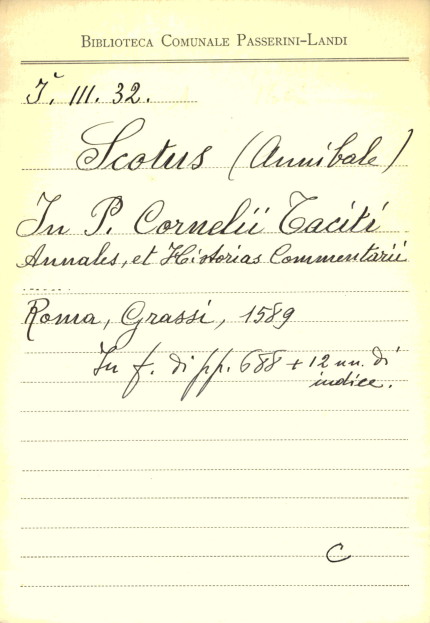 BIBLIOTECA COMUNALE PASSERINI-LANDI
J. III. 32.
Scotus (Annibale)
In P. Cornelii Taciti
Annales, et Historias Commentarii
........
Roma, Grassi, 1589
In f. di pp. 688 + 12 nn. di
indice.
C